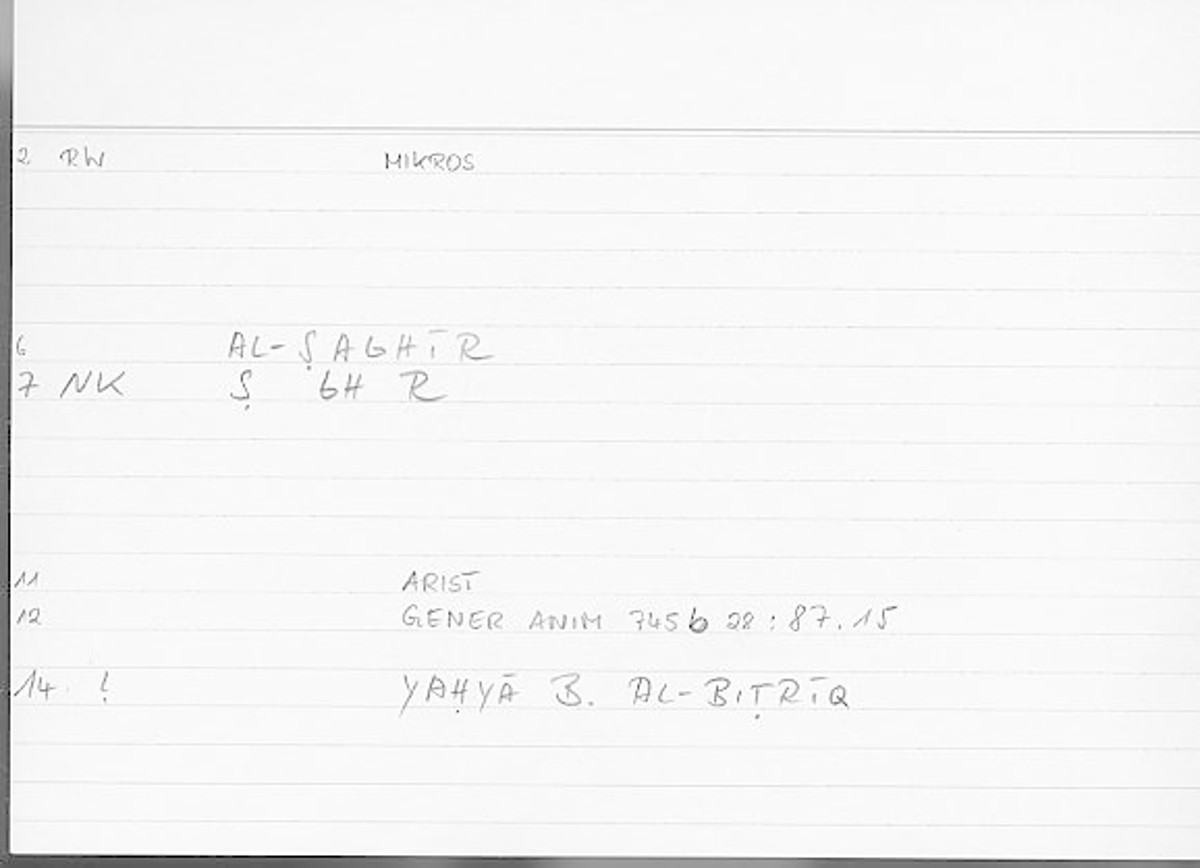 2 RW MIKROS
6 AL-ṢAGHĪR
7 NK Ṣ GH R
11 ARIST
12 GENER ANIM 745b 22 : 87.15
14 ! YAḤYĀ B. AL-BIṬRĪQ